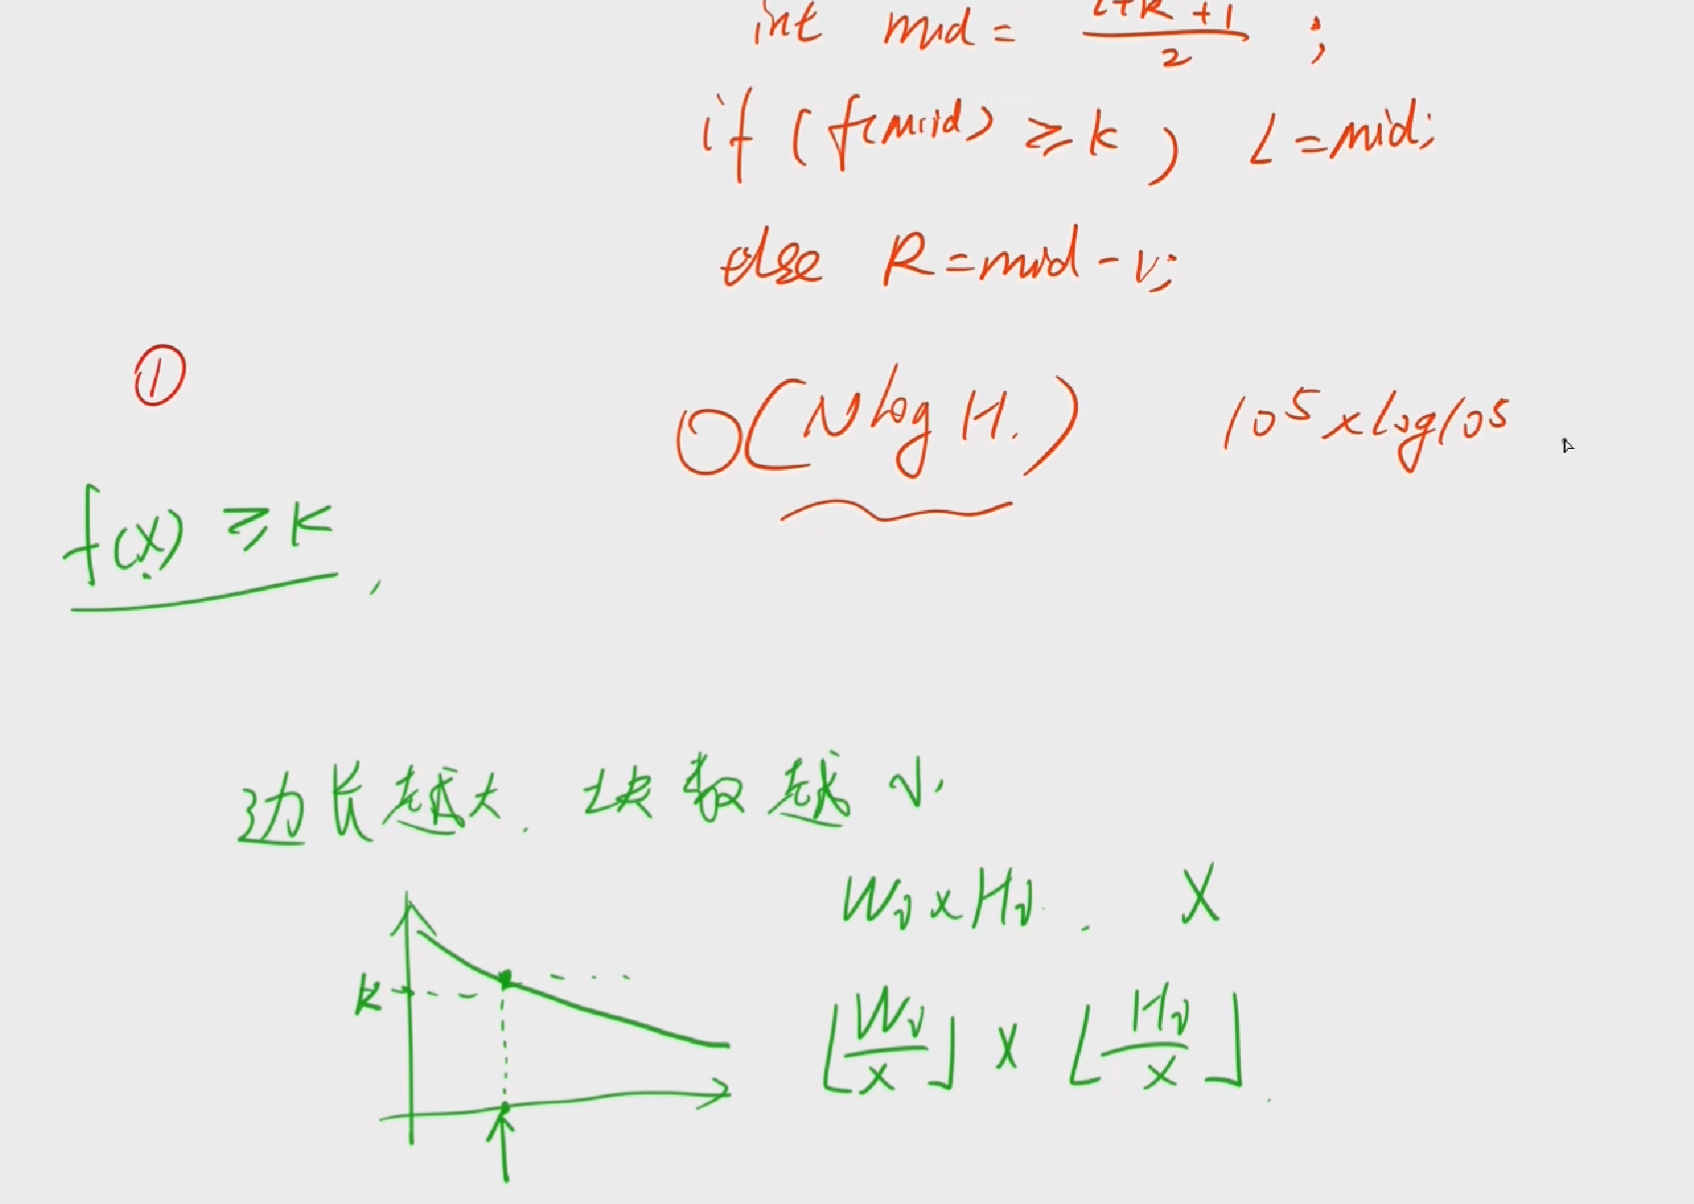 int mid = (L+R+1)/2 ;
if (f(mid) ≥ k) L=mid;
else R=mid-1;
①
O(N log H.) 10^5 x log10^5
f(x) ≥ K ,
边长越大. 块数越小.
Wi x Hi . X
K
⌊Wi/x⌋ x ⌊Hi/x⌋.